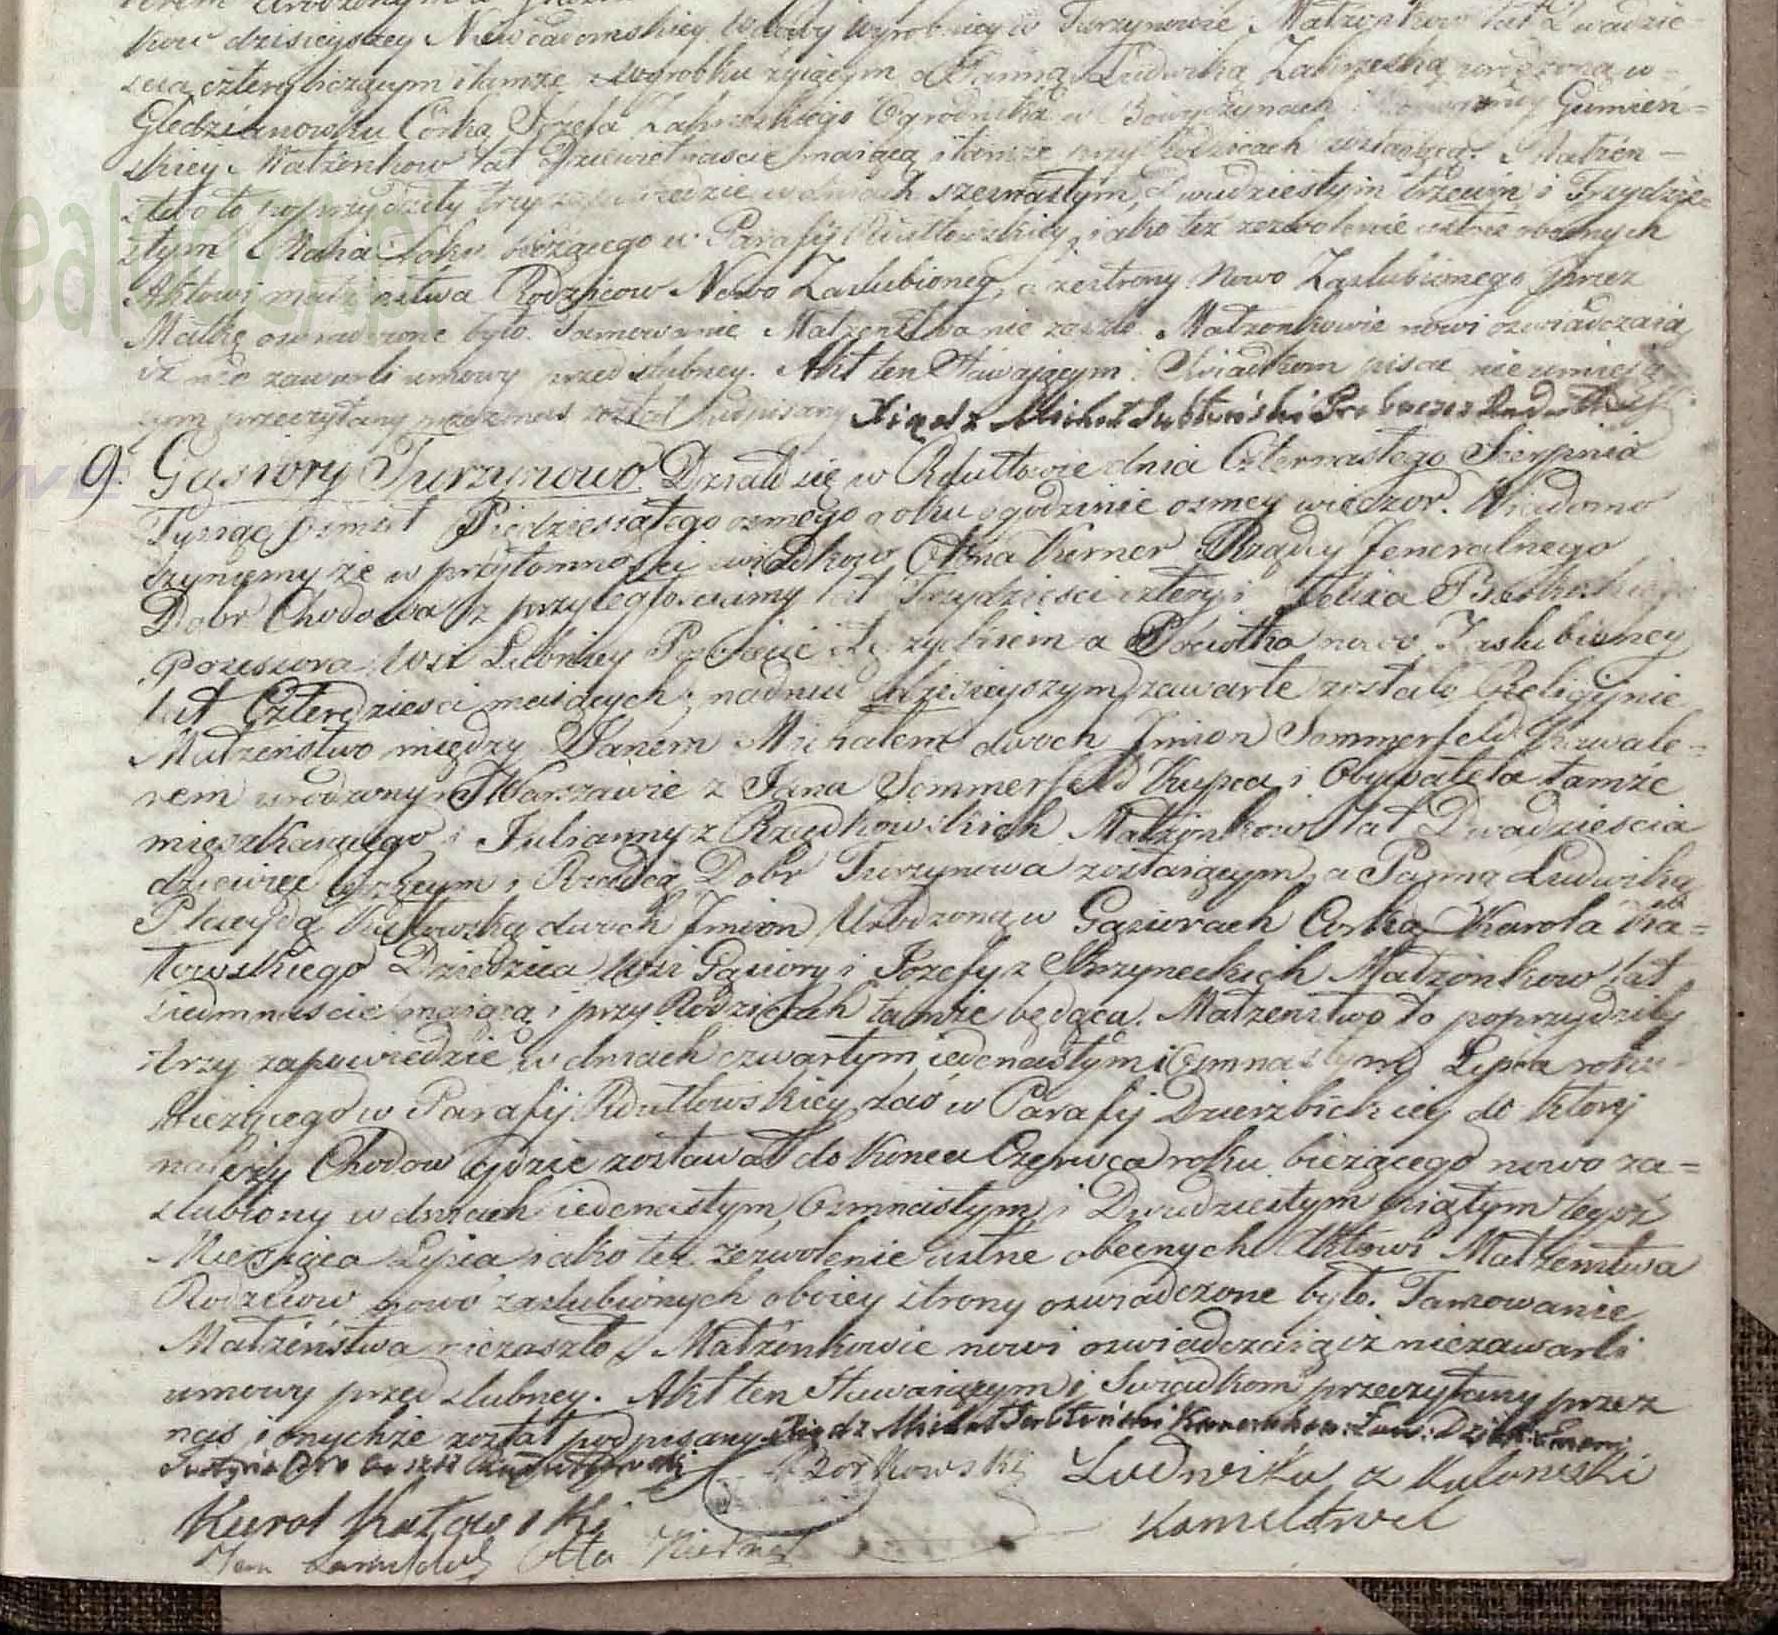 kow dzisieyszey Niewiadomskiey Wdowy Wyrobnicy w Turzynowie Małżonkow lat Dwadzie-
scia cztery liczącym i tamże z wyrobku żyiącym a Panną Ludwiką Zakrzeską urodzoną w
Głedzianowku Córką Józefa Zakrzeskiego Ogrodnika w Gumień-
skiey Małżonkow lat Dziewiętnascie maiącą i tamże przy Rodzicach zostaiącą. Małżeń-
stwo to poprzydziły trzy zapowiedzie w dniach szesnastym, Dwudziestym trzecim i Trzydzie-
stym Maia roku bieżącego w Parafij Rdutowskiey, iako też zezwolenie ustne obecnych
Aktowi małżeństwa Rodzicow Nowo Zaslubioney, a ze strony Nowo Zaslubionego przez
Matkę oswiadczone było. Tamowanie Małżeństwa nie zaszło. Małżonkowie nowi oswiadczaią
iż nie zawarli umowy przed slubney. Akt ten Stawaiącym i Swiadkom pisać nie umieią
cym przeczytany przez nas został podpisany Xiądz Michał Probosczz
9. Gąsiory Turzynowo Działo się w Rdutowie dnia Czternastego Sierpnia
Tysiąc osmset Piędziesiątego osmego roku o godzinie osmey wieczor. Wiadomo
czyniemy że w przytomności swiadkow Ottona Kerner Rządcy Jeneralnego
Dobr Chodowa z przyległosciamy lat Trzydziesci cztery i Felixa
Possesora Wsi Lubniey Powiecie Łęczyckiem a nowo Zaslubioney
lat Czterdziesci maiących; na dniu dzisieyszym zawarte zostało Religijnie
Małżeństwo między Janem Michałem dwoch Jmion Sommerfeld Kawale-
rem urodzonym w Warszawie z Jana Sommerfeld Kupca i Obywatela tamże
mieszkaiącego i Julianny z Rządkowskich Małżonkow lat Dwadziescia
dziewięć liczącym i Rządcą Dobr Turzynowa zostaiącym, a Panną Ludwiką
Placydą Kałowską dwoch Jmion Urodzoną w Gąsiorach Corką Karola Ka-
łowskiego Dziedzica Wsi Gąsiory i Józefy z Skrzyneckich Małżonkow lat
siedmnascie maiącą i przy Rodzicach tamże będącą. Małżenstwo to poprzydziły
trzy zapowiedzie w dniach czwartym iedenastym i Osmnastym Lipca roku
bieżącego w Parafij Rdutowskiey zaś w Parafij Dzierzbickiey do ktorej
należy Chodow gdzie zostawał do Konca Czerwca roku bieżącego nowo za-
slubiony w dniach iedenastym, Osmnastym i Dwudziestym piątym tegoż
Miesiąca Lipca iako też zezwolenie ustne obecnych Aktowi Małżenstwa
Rodzicow nowo zaslubionych oboiey strony oswiadczone było. Tamowanie
Małżeństwa niezaszło. Małżonkowie nowi oswiadczaią iż niezawarli
umowy przed slubney. Akt ten Stawaiącym i Swiadkom przeczytany przez
nas i onychże został podpisany Xiądz Michał
Ludwika z Kałowski
Karol Kałowski
Otto Kerner